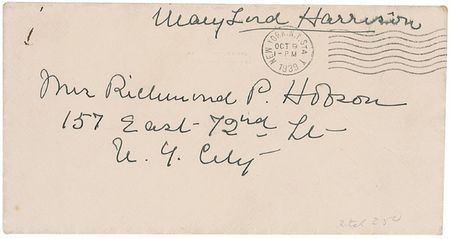 Mary Lord Harrison
NEW YORK, N.Y. STA
OCT 9
-PM
1933
Mrs Richmond P. Hobson
157 East-72nd St-
N. Y. City-